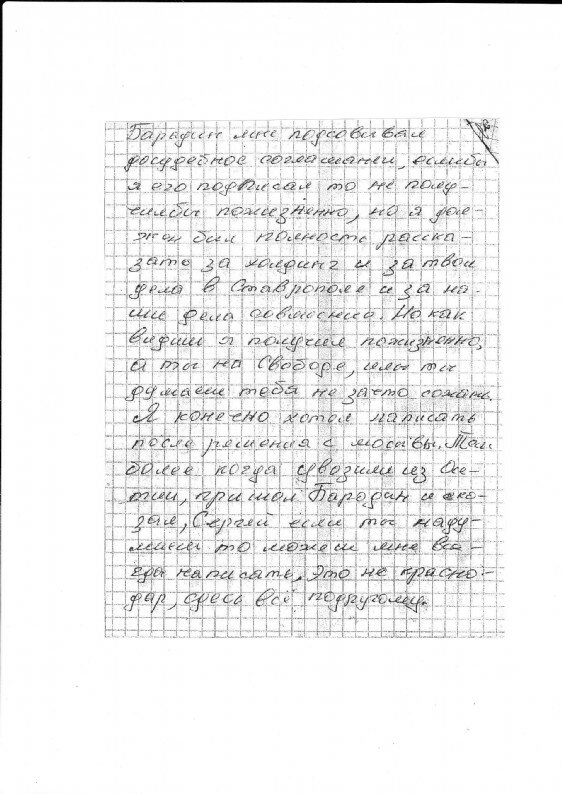 Бородин мне подсовывал
досудебное соглашании, еслибы
я его подписал то не полу-
чилбы пожизненно, но я дол-
жен был полность расска-
зать за холдинг и за твои
дела в Ставрополе и за на-
ши дела совмесные. Но как
видиш я получил пожизненно,
а ты на Свободе, или ты
думаеш тебя не зачто сожать.
Я конечно хотел написать
после решения с москвы. Тем
более когда увозили из Осе-
тии, пришол Бородин и ска-
зал, Сергей если ты наду-
маеш то можеш мне все-
гда написать. Это не красно-
дар, сдесь всё подругому.